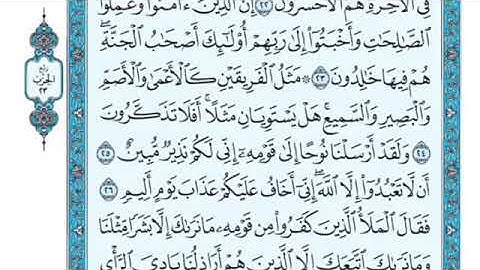 فِى ٱلْأَخِرَةِ هُمُ ٱلْأَخْسَرُونَ ٢٢ إِنَّ ٱلَّذِينَ ءَامَنُوا۟ وَعَمِلُوا۟
ٱلصَّٰلِحَٰتِ وَأَخْبَتُوٓا۟ إِلَىٰ رَبِّهِمْ أُو۟لَٰٓئِكَ أَصْحَٰبُ ٱلْجَنَّةِۖ
هُمْ فِيهَا خَٰلِدُونَ ٢٣ ۞ مَثَلُ ٱلْفَرِيقَيْنِ كَٱلْأَعْمَىٰ وَٱلْأَصَمِّ
وَٱلْبَصِيرِ وَٱلسَّمِيعِۚ هَلْ يَسْتَوِيَانِ مَثَلًاۚ أَفَلَا تَذَكَّرُونَ
٢٤ وَلَقَدْ أَرْسَلْنَا نُوحًا إِلَىٰ قَوْمِهِۦٓ إِنِّى لَكُمْ نَذِيرٌ مُّبِينٌ ٢٥
أَن لَّا تَعْبُدُوٓا۟ إِلَّا ٱللَّهَۖ إِنِّىٓ أَخَافُ عَلَيْكُمْ عَذَابَ يَوْمٍ أَلِيمٍ ٢٦
فَقَالَ ٱلْمَلَأُ ٱلَّذِينَ كَفَرُوا۟ مِن قَوْمِهِۦ مَا نَرَىٰكَ إِلَّا بَشَرًا مِّثْلَنَا
وَمَا نَرَىٰكَ ٱتَّبَعَكَ إِلَّا ٱلَّذِينَ هُمْ أَرَاذِلُنَا بَادِىَ ٱلرَّأْىِ
ربع
الحزب
٢٣